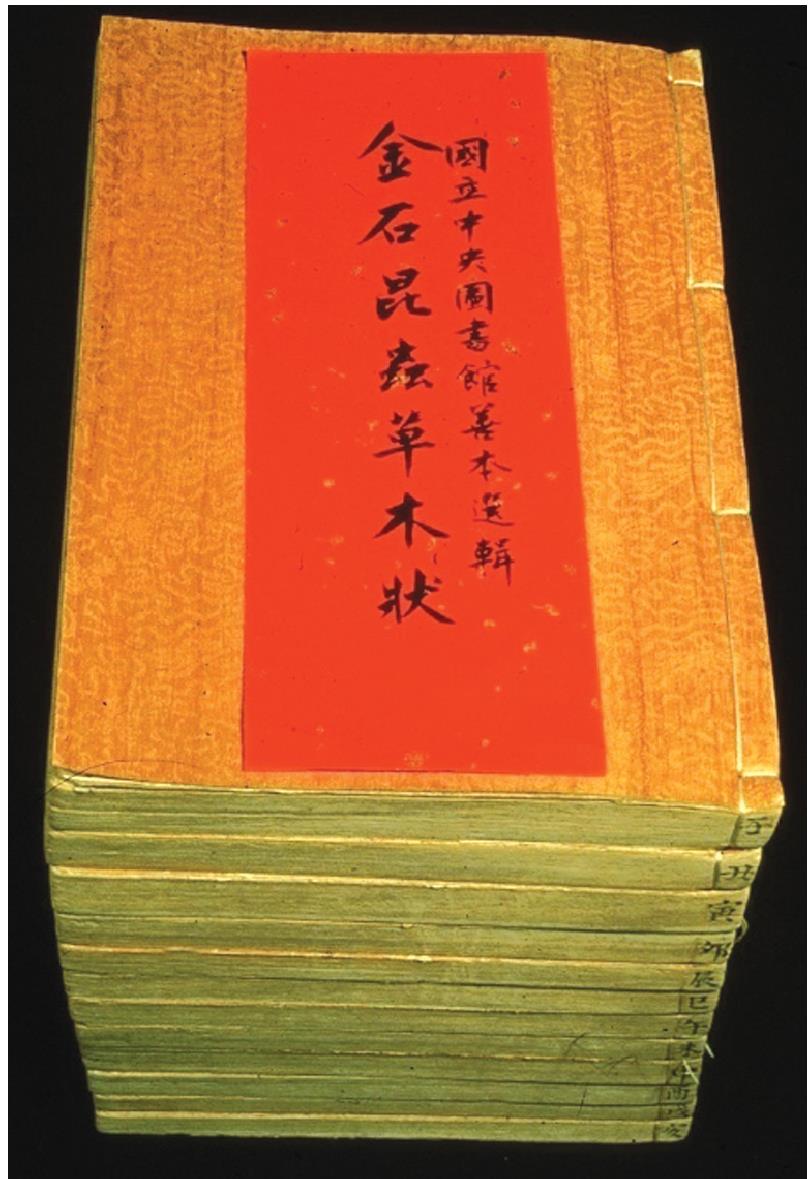 國立中央圖書館善本選輯
金石昆蟲草木狀
子
丑
寅
卯
辰
巳
午
未
申
酉
戌
亥